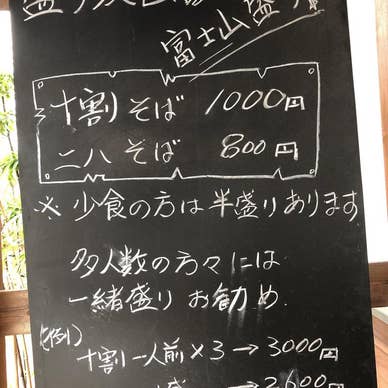 富士山盛り
十割そば 1000円
二八そば 800円
※ 少食の方は半盛りあります
多人数の方々には
一緒盛りお勧め.
(例)
十割一人前×3→3000円